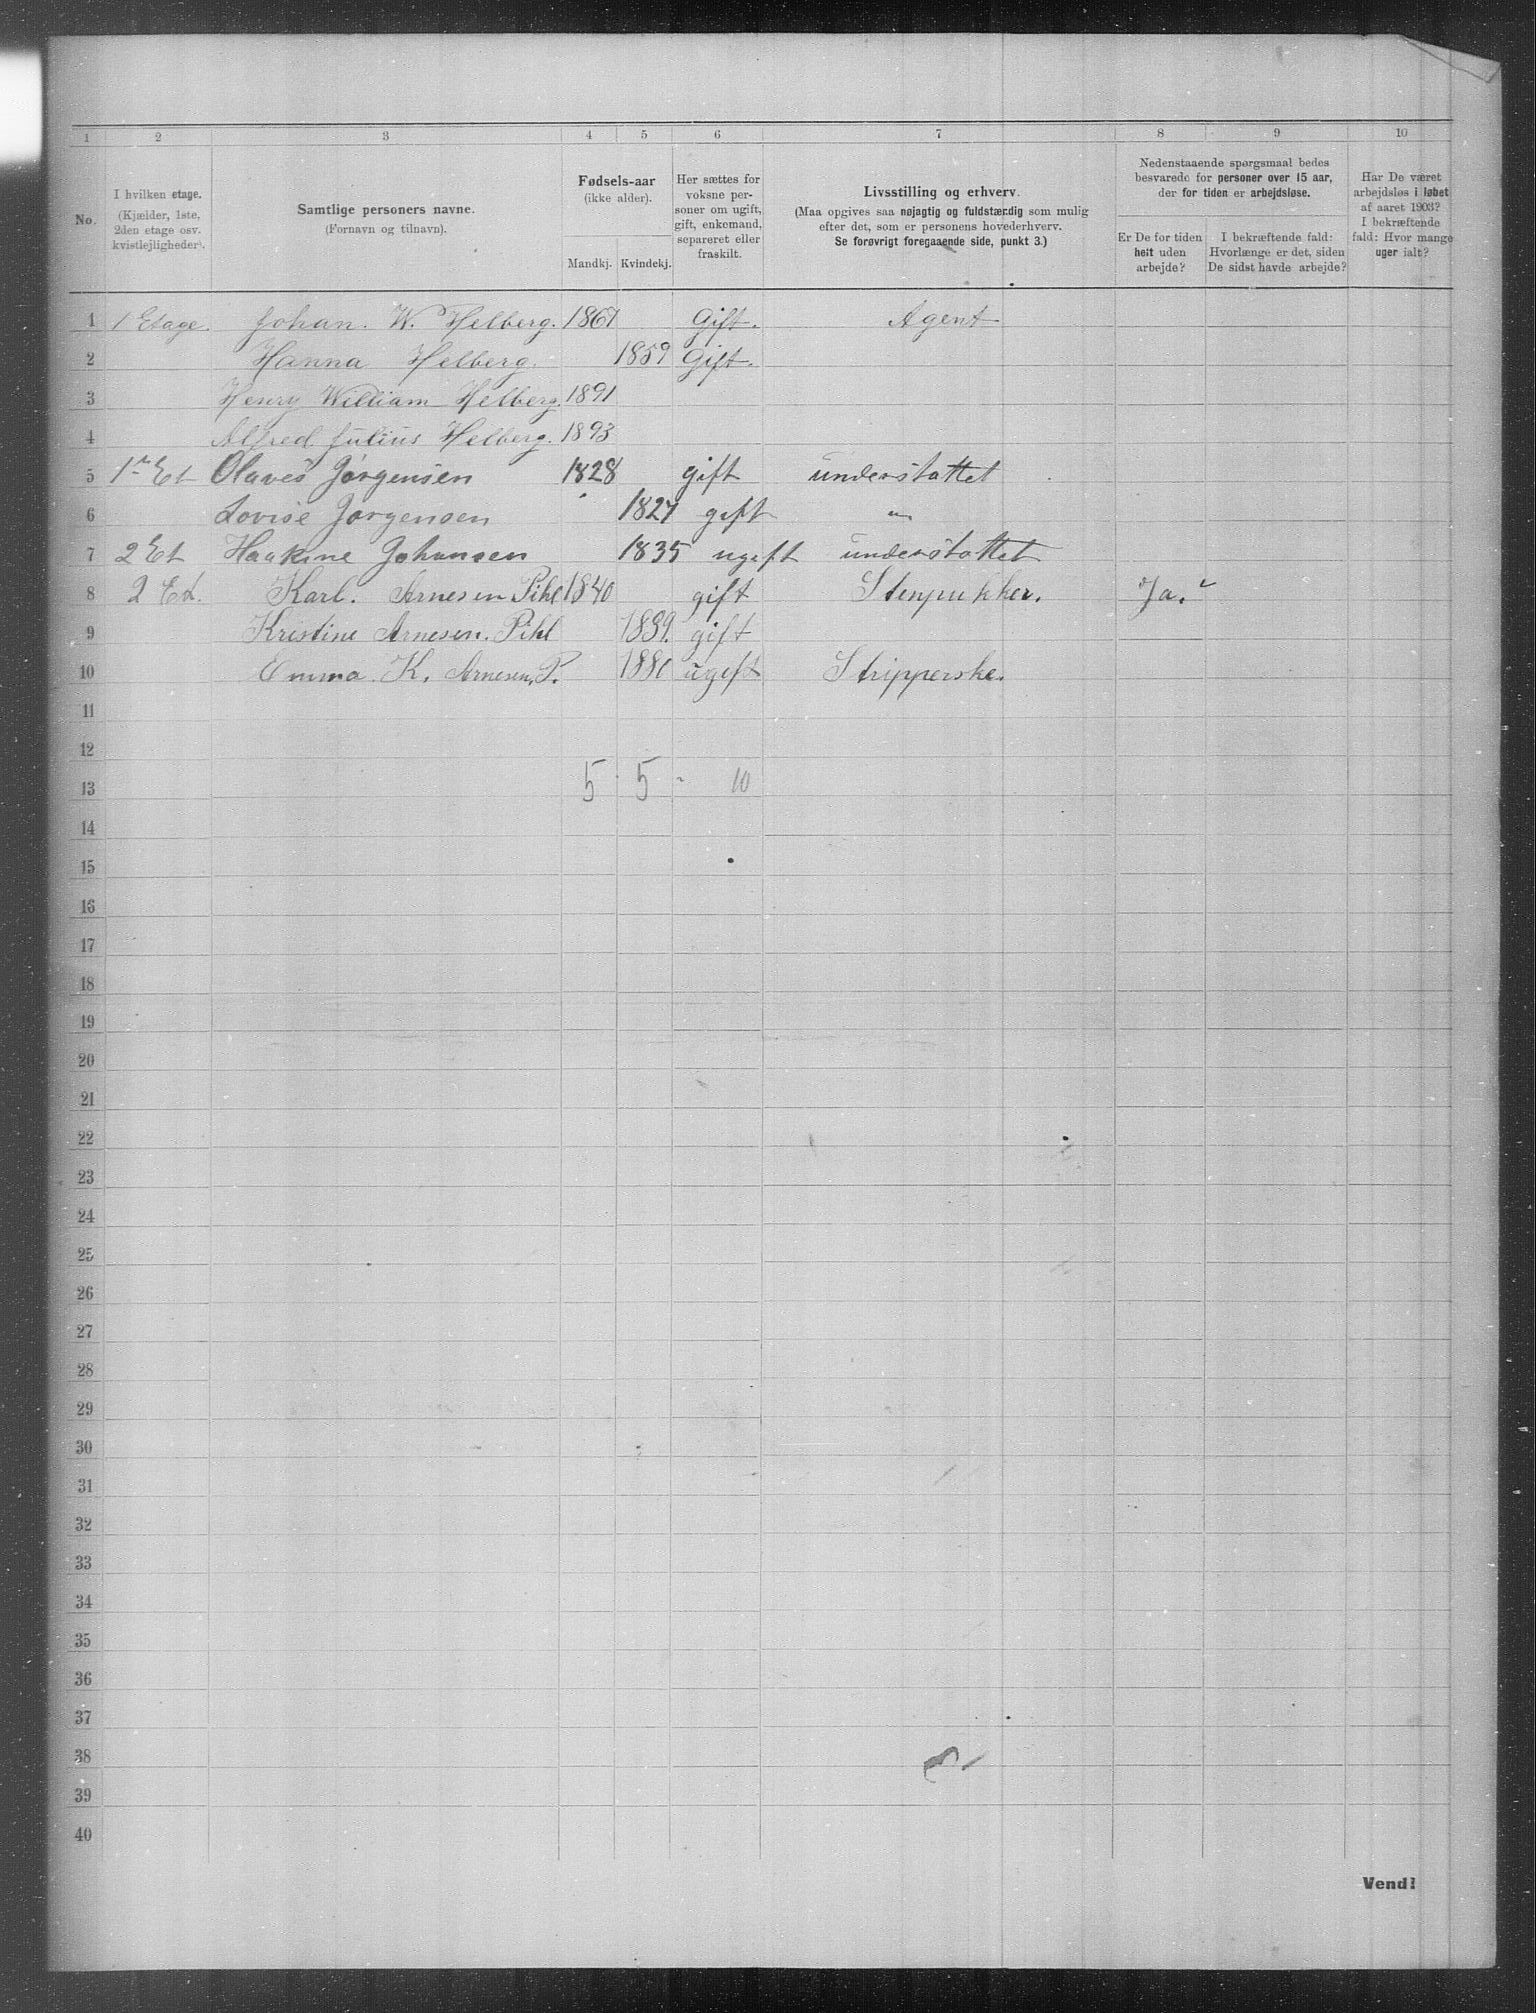 1 2 3 4 5 6 7 8 9 10
No.
I hvilken etage.
(Kjælder, 1ste,
2den etage osv.
kvistlejligheder).
Samtlige personers navne.
(Fornavn og tilnavn).
Fødsels-aar
(ikke alder).
Mandkj. Kvindekj.
Her sættes for
voksne per-
soner om ugift,
gift, enkemand,
separeret eller
fraskilt.
Livsstilling og erhverv.
(Maa opgives saa nøjagtig og fuldstændig som mulig
efter det, som er personens hovederhverv.
Se forøvrigt foregaaende side, punkt 3.)
Nedenstaaende spørgsmaal bedes
besvarede for personer over 15 aar,
der for tiden er arbejdsløse.
Er De for tiden
helt uden
arbejde?
I bekræftende fald:
Hvorlænge er det, siden
De sidst havde arbejde?
Har De været
arbejdsløs i løbet
af aaret 1903?
I bekræftende
fald: Hvor mange
uger ialt?
1 1 Etage. Johan. W. Helberg. 1867 Gift. Agent
2 Hanna Helberg. 1859 Gift.
3 Henry William Helberg. 1891
4 Alfred Julius Helberg. 1893
5 1ª Et Olaves Jørgensen 1828 gift understøttet
6 Lovise Jørgensen 1827 gift "
7 2 Et Haakine Johansen 1835 ugift understøttet
8 2 Et. Karl. Arnesen Pihl 1840 gift Stenpukker. Ja.
9 Kristine Arnesen. Pihl 1839. gift
10 Emma. K. Arnesen. P. 1880 ugift Stripperske.
11
12
13 5 · 5 - 10
14
15
16
17
18
19
20
21
22
23
24
25
26
27
28
29
30
31
32
33
34
35
36
37
38
39
40
Vend!